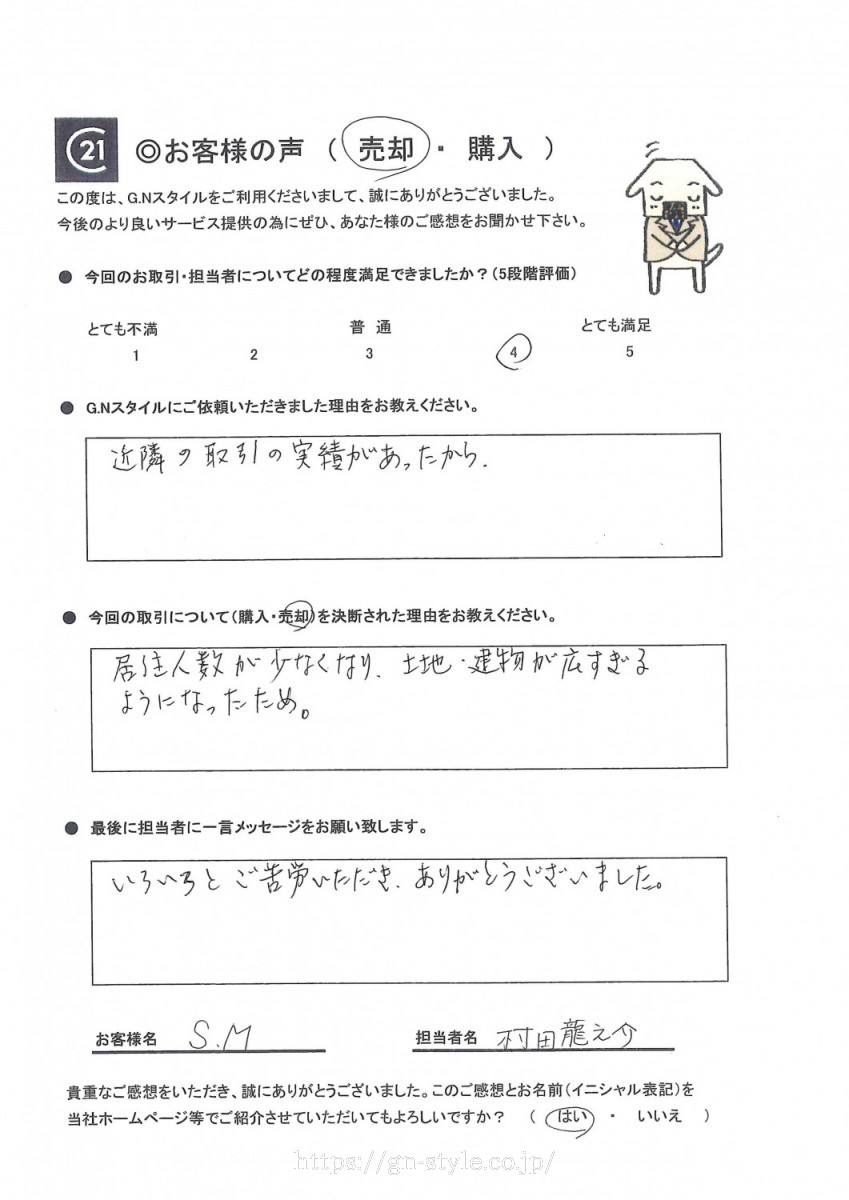 C21 ◎お客様の声 ( 売却 ・ 購入 )
この度は、G.Nスタイルをご利用くださいまして、誠にありがとうございました。
今後のより良いサービス提供の為にぜひ、あなた様のご感想をお聞かせ下さい。
● 今回のお取引・担当者についてどの程度満足できましたか？(5段階評価)
とても不満 普 通 とても満足
1 2 3 4 5
● G.Nスタイルにご依頼いただきました理由をお教えください。
近隣の取引の実績があったから.
● 今回の取引について(購入・売却)を決断された理由をお教えください。
居住人数が少なくなり、土地・建物が広すぎる
ようになったため。
● 最後に担当者に一言メッセージをお願い致します。
いろいろとご苦労いただき、ありがとうございました。
お客様名 S.M 担当者名 村田龍之介
貴重なご感想をいただき、誠にありがとうございました。このご感想とお名前(イニシャル表記)を
当社ホームページ等でご紹介させていただいてもよろしいですか？ ( はい ・ いいえ )
https://gn-style.co.jp/